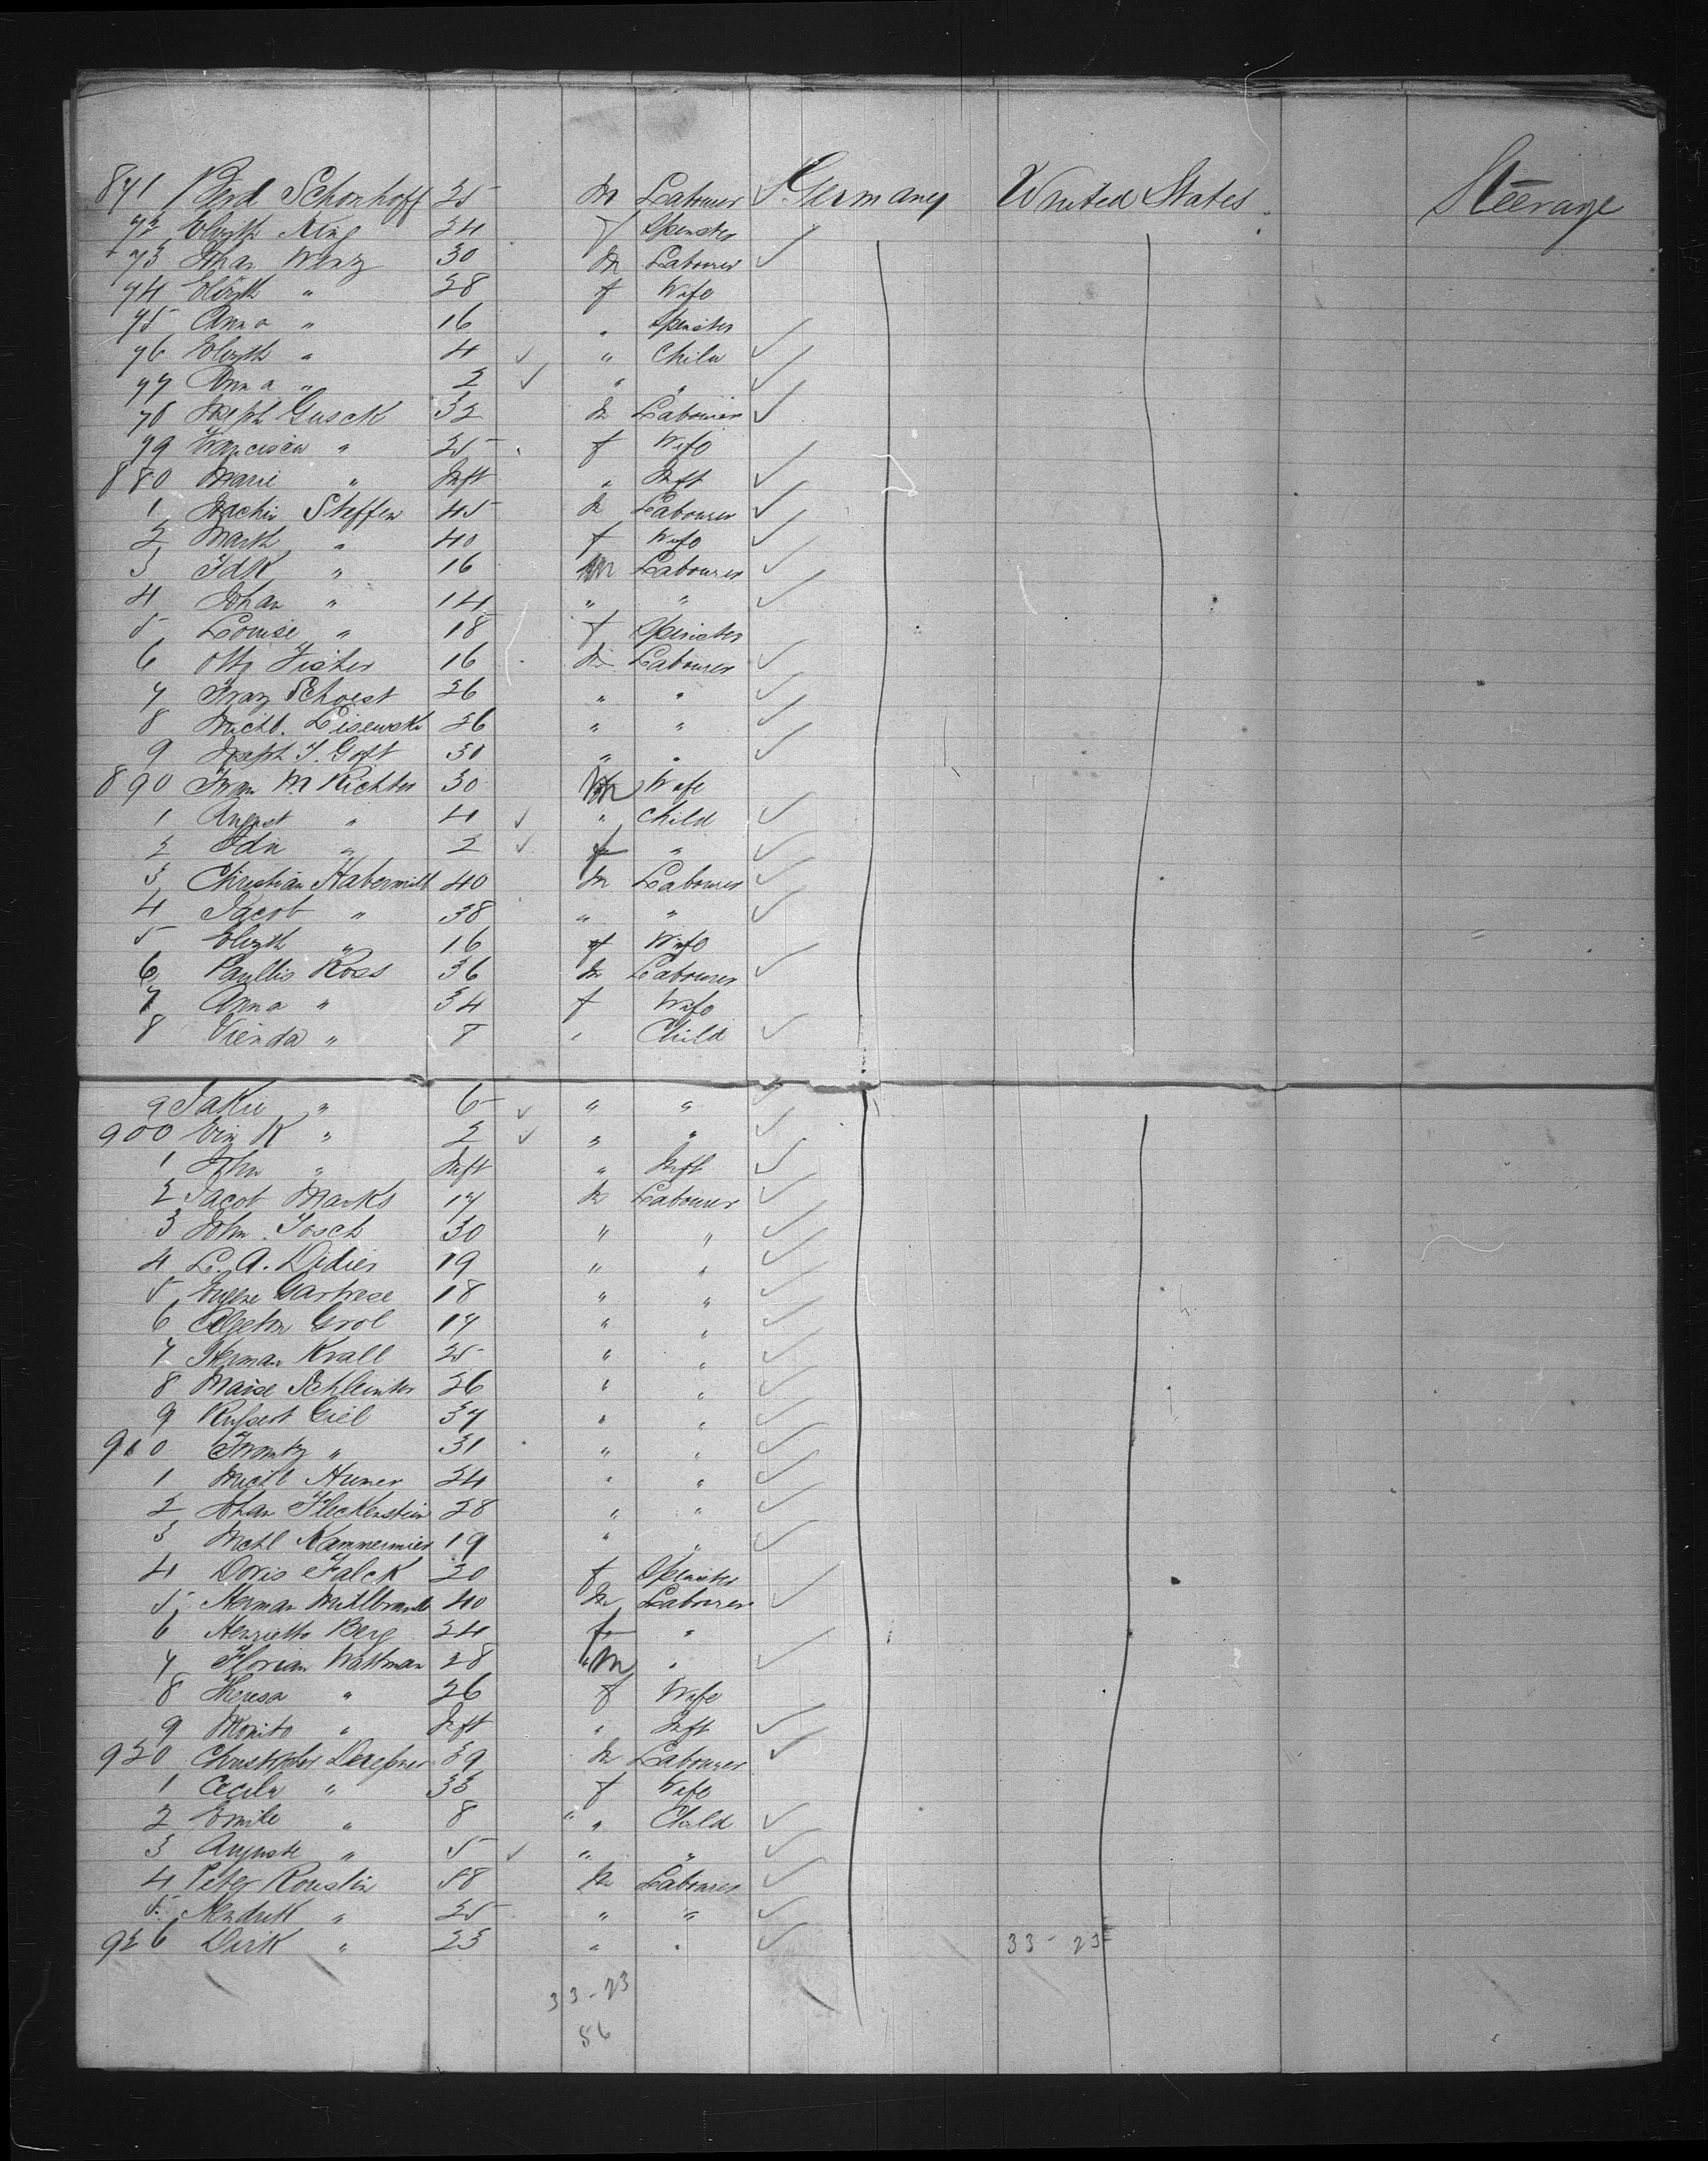 871 Ferd Schonhoff 25 m Labourer Germany United States Steerage
72 Elizth King 24 f Spinster
73 Johan Wenz 30 m Labourer
74 Elizth " 28 f Wife
75 Anna " 16 " Spinster
76 Elizth " 4 " Child
77 Anna " 2 " "
78 Joseph Gusck 32 m Labourer
79 Francisca " 25 f Wife
880 Marie " Inft " Inft
1 Jochin Steffen 45 m Labourer
2 Marth " 40 f Wife
3 " 16 m Labourer
4 Johan " 14 " "
5 Louise " 18 f Spinster
6 Otto Fister 16 m Labourer
7 Franz Schoest 26 " "
8 Michl. Lisewski 26 " "
9 Joseph T. Goft 30 " "
890 M Richter 30 Wife
1 August " 4 " Child
2 Ida " 2 f "
3 Christian Habermill 40 m Labourer
4 Jacob " 38 " "
5 Elizth " 16 f Wife
6 Ross 36 m Labourer
7 Anna " 34 f Wife
8 " 8 " Child
9 " 6 " "
900 " 2 " "
1 John " Inft " Inft
2 Jacob Marks 17 m Labourer
3 John Josch 30 " "
4 L. A. Didier 19 " "
5 Eugene 18 " "
6 Grol 17 " "
7 Herman Krall 25 " "
8 26 " "
9 Giel 37 " "
910 " 31 " "
1 Michl Humer 24 " "
2 Johan Fleckenstein 28 " "
3 Michl Kammermier 19 " "
4 Doris Falck 20 f Spinster
5 Herman 40 m Labourer
6 Henrietta Berg 24 f "
7 Florian Wattman 28 m "
8 Theresa " 26 f Wife
9 " Inft " Inft
920 Christopher 39 m Labourer
1 Cecila " 33 f Wife
2 Emile " 8 " " Child
3 Auguste " 5 " "
4 Peter Rouslin 58 m Labourer
5 Hendrik " 25 " "
926 Dirk " 23 " " 33-23
33-23
56